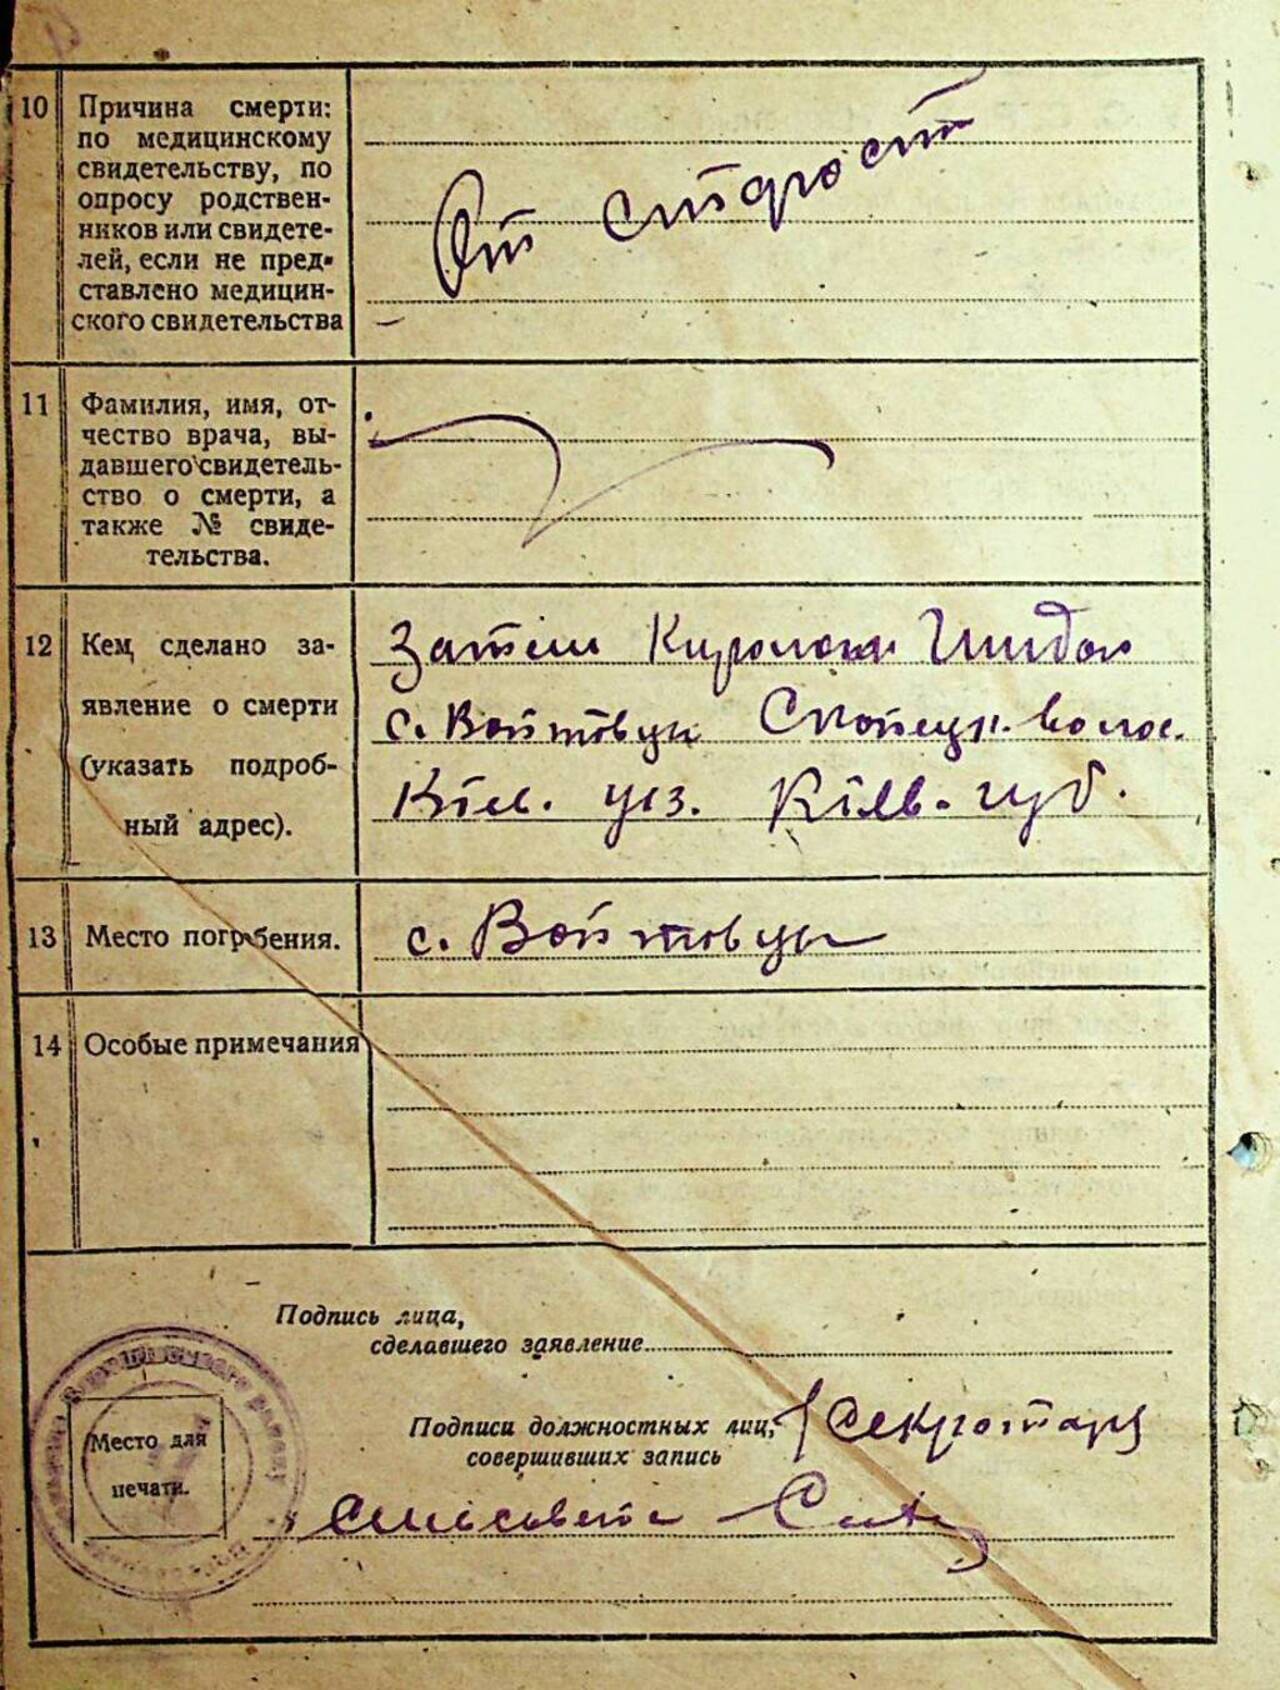 10 Причина смерти:
по медицинскому
свидетельству, по
опросу родствен-
ников или свидете-
лей, если не пред-
ставлено медицин-
ского свидетельства
От старост
11 Фамилия, имя, от-
чество врача, вы-
давшего свидетель-
ство о смерти, а
также № свиде-
тельства.
12 Кем сделано за-
явление о смерти
(указать подроб-
ный адрес).
с. Войтовци волос.
Київ. уез. Київ. губ.
13 Место погребения.
с. Войтовци
14 Особые примечания
Подпись лица,
сделавшего заявление
Подписи должностных лиц,
совершивших запись
Секретарь
Место для
печати.